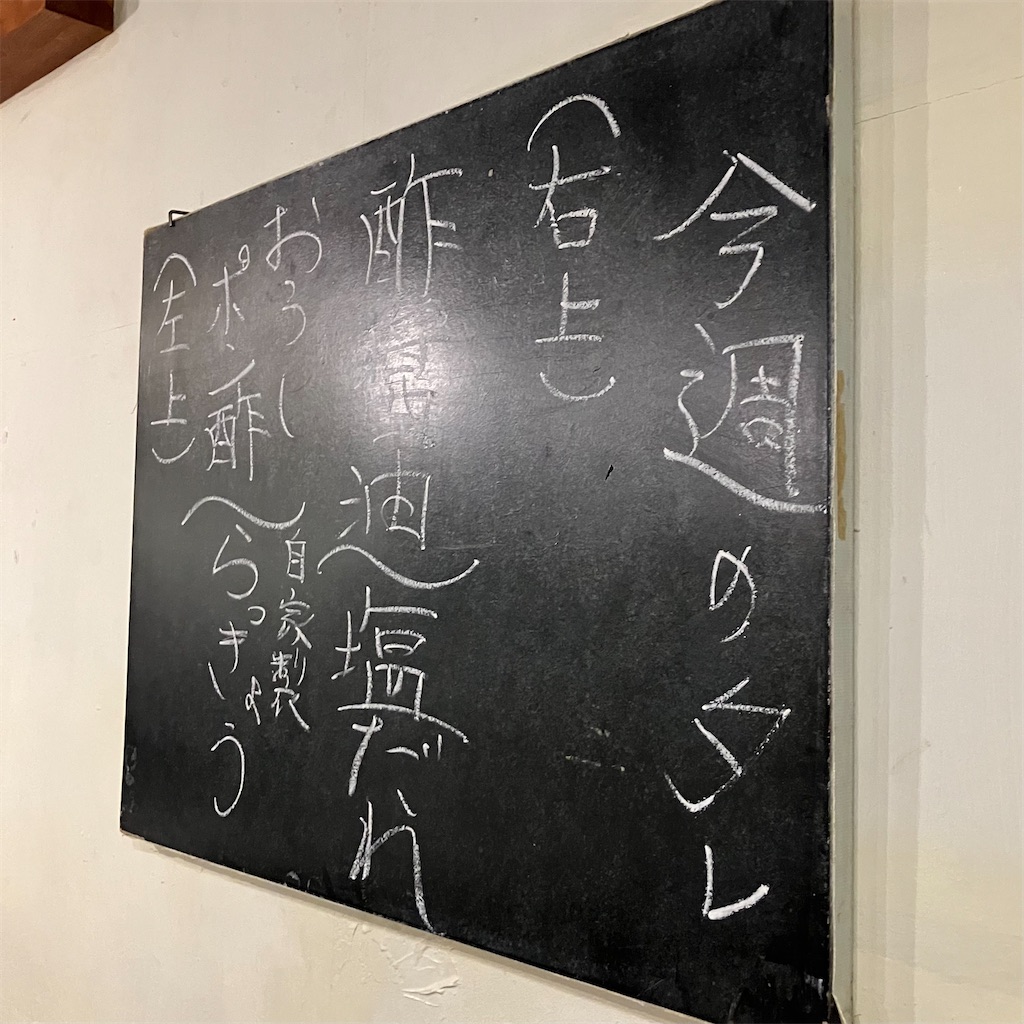 今週のタレ
(右上)
酢醤油〜塩だれ
おろし
ポン酢〜
自家製
らっきょう
(左上)